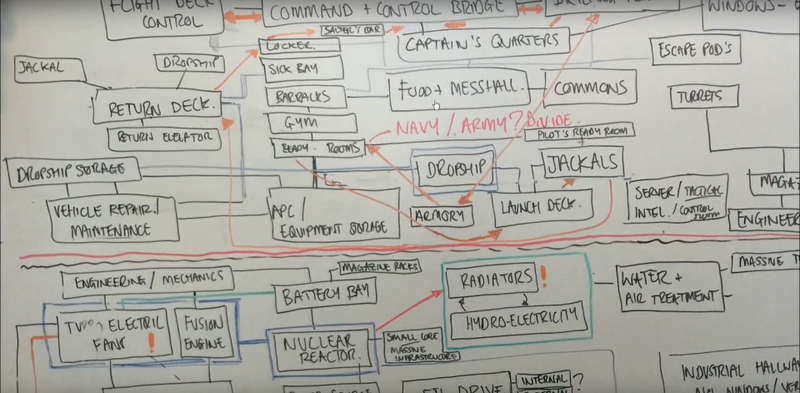 FLIGHT DECK
CONTROL
COMMAND + CONTROL BRIDGE
WINDOWS-
SAVER'S BAR
LOCKER.
CAPTAIN'S QUARTERS
ESCAPE POD'S
JACKAL
DROPSHIP
SICK BAY
BARRACKS
FOOD + MESSHALL.
COMMONS
TURRETS
RETURN DECK.
GYM
NAVY / ARMY? DIVIDE.
PILOT'S READY ROOM
RETURN ELEVATOR
READY ROOMS
DROPSHIP STORAGE
DROPSHIP
JACKALS
VEHICLE REPAIR /
MAINTENANCE
APC /
EQUIPMENT STORAGE
ARMORY
LAUNCH DECK.
SERVER / TACTICAL
INTEL. / CONTROL
ROOM
MAGA
ENGINEER
ENGINEERING / MECHANICS
MAGAZINE RACKS
BATTERY BAY
RADIATORS !
WATER +
AIR TREATMENT
MASSIVE T
ELECTRIC
FANS !
FUSION
ENGINE
NUCLEAR
REACTOR.
SMALL CORE
MASSIVE
INFRASTRUCORE
HYDRO-ELECTRICITY
INDUSTRIAL HALLWA
DRIVE
INTERNAL
?